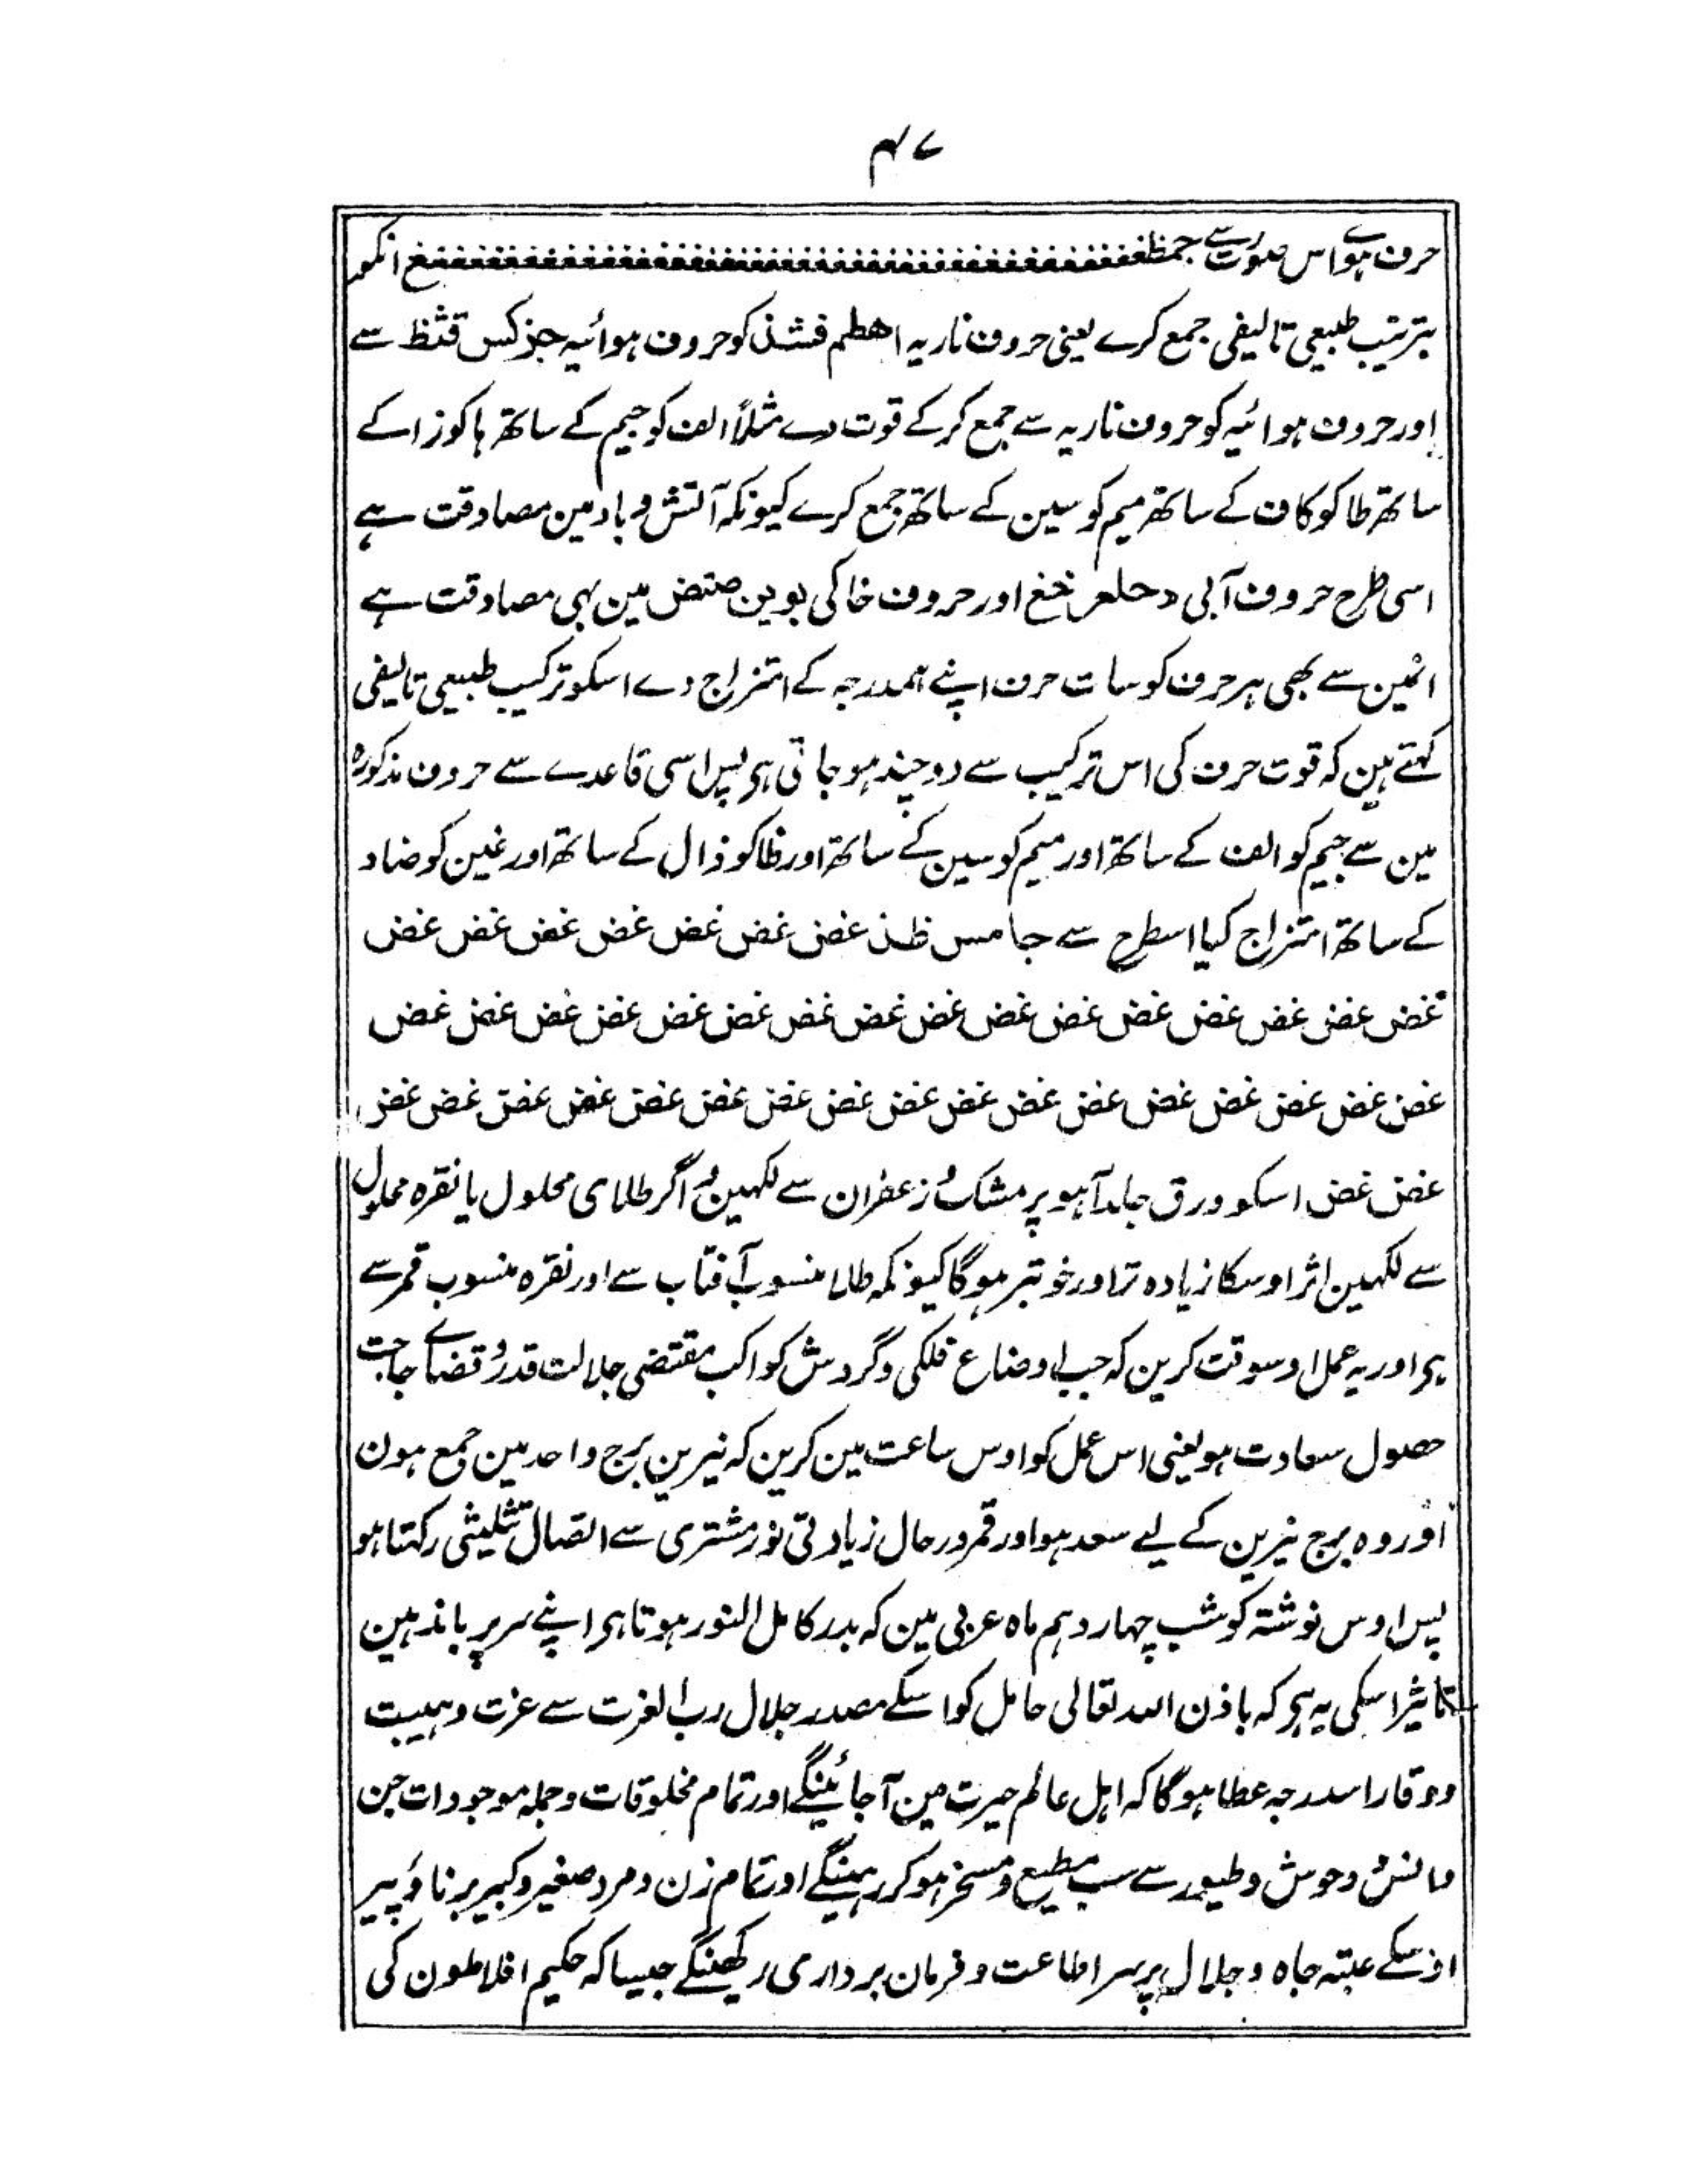 ۴۷
حرف ہوے اس صورت سے جمظغغغغغغغغغغغغغغغغغغغغغغغغغغغغغغغغغغغغغغغغغ انکو
بترتیب طبیعی تالیفی جمع کرے یعنی حروف ناریہ اھطم فشذ کو حروف ہوائیہ جزکس قثظ سے
اور حروف ہوائیہ کو حروف ناریہ سے جمع کرکے قوت دے مثلاً الف کو جیم کے ساتھ ہا کو زا کے
ساتھ طا کو کاف کے ساتھ میم کو سین کے ساتھ جمع کرے کیونکہ آتش و باد مین مصادقت ہے
اسی طرح حروف آبی دحلعر خغ اور حروف خاکی بوین صتض مین بہی مصادقت ہے
انمین سے بھی ہر حرف کو سات حرف اپنے ہمدرجہ کے امتزاج دے اسکو ترکیب طبیعی تالیفی
کہتے ہین کہ قوت حرف کی اس ترکیب سے دوچند ہو جاتی ہی پس اسی قاعدے سے حروف مذکورہ
مین سے جیم کو الف کے ساتھ اور میم کو سین کے ساتھ اور ظا کو ذال کے ساتھ اور غین کو ضاد
کے ساتھ امتزاج کیا اسطرح سے جا مس ظذ غض غض غض غض غض غض غض غض
غض غض غض غض غض غض غض غض غض غض غض غض غض غض غض
غض غض غض غض غض غض غض غض غض غض غض غض غض غض غض غض غض
غض غض اسکو ورق جلد آہو پر مشک و زعفران سے لکہین و اگر طلای محلول یا نقرہ محلول
سے لکہین اثر اوسکا زیادہ تر اور خوبتر ہوگا کیونکہ طلا منسوب آفتاب سے اور نقرہ منسوب قمر سے
ہی اور یہ عمل اوسوقت کرین کہ جب اوضاع فلکی و گردش کواکب مقتضی جلالت قدر و قضاے حاجت
حصول سعادت ہو یعنی اس عمل کو اوس ساعت مین کرین کہ نیرین برج واحد مین جمع ہون
اور وہ برج نیرین کے لیے سعد ہو اور قمر در حال زیادتی نور مشتری سے اتصال تثلیثی رکہتا ہو
پس اوس نوشتہ کو شب چہاردہم ماہ عربی مین کہ بدر کامل النور ہوتا ہی اپنے سر پر باندہین
تاثیر اسکی یہ ہی کہ باذن اللہ تعالی حامل کو اسکے مصدر جلال رب العزت سے عزت و ہیبت
و وقار اسدرجہ عطا ہوگا کہ اہل عالم حیرت مین آجائینگے اور تمام مخلوقات و جملہ موجودات جن
و انس و وحوش و طیور سے سب مطیع و مسخر ہوکر رہینگے اور تمام زن و مرد صغیر و کبیر برنا و پیر
اوسکے عتبہ جاہ و جلال پر سر اطاعت و فرمان برداری رکھینگے جیسا کہ حکیم افلاطون کی